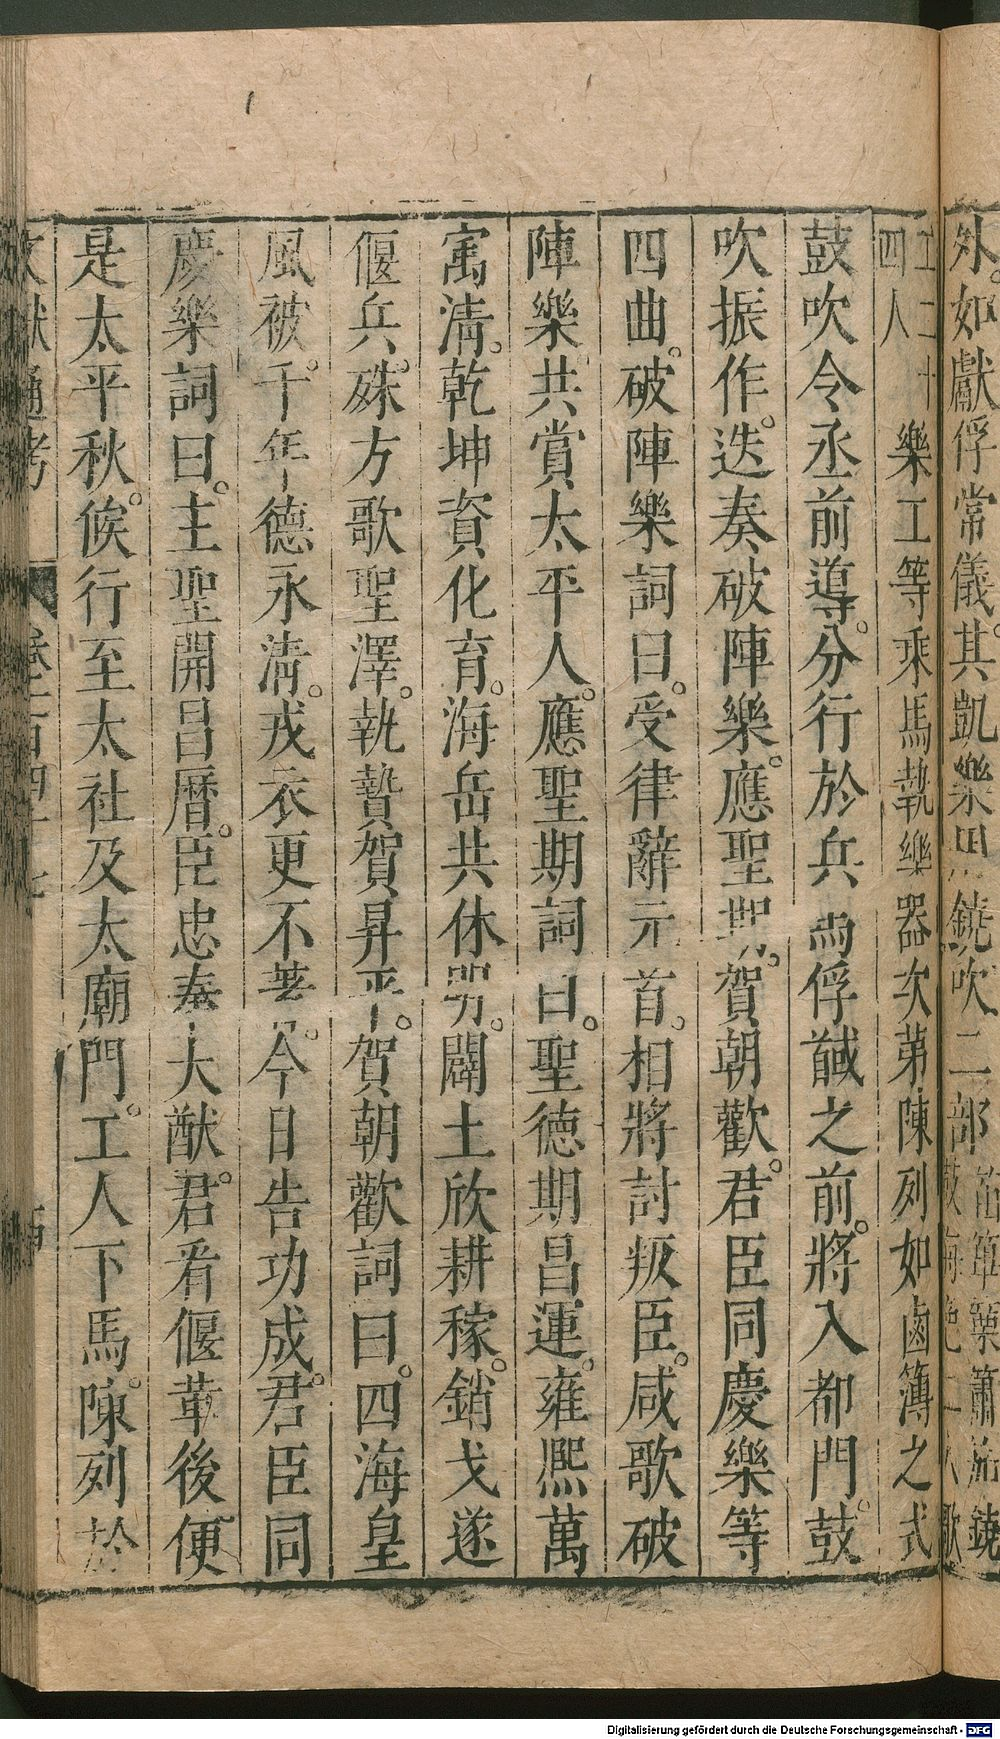 外。如獻俘常儀。其凱樂用鐃吹二部
工二十
四人
樂工等乘馬執樂器次第陳列如鹵簿之式
鼓吹令丞前導。分行於兵馬俘馘之前。將入都門。鼓
吹振作。迭奏破陣樂。應聖期。賀朝歡。君臣同慶樂等
四曲。破陣樂詞曰。受律辭元首。相將討叛臣。咸歌破
陣樂共賞太平人。應聖期詞曰。聖德期昌運。雍熙萬
㝢清。乾坤資化育。海岳共休明。闢土欣耕稼。銷戈遂
偃兵。殊方歌聖澤。執贄賀昇平。賀朝歡詞曰。四海皇
風被。千年德永清。戎衣更不著。今日告功成。君臣同
慶樂詞曰。主聖開昌曆。臣忠奏大猷。君看偃革後便
是太平秋。候行至太社及太廟門。工人下馬。陳列於
文獻通考
Digitalisierung gefördert durch die Deutsche Forschungsgemeinschaft - DFG